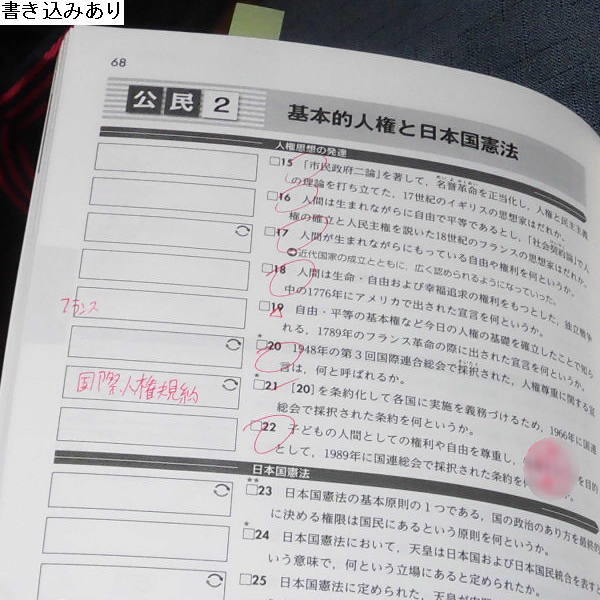 書き込みあり
68
公民 2
基本的人権と日本国憲法
人権思想の発達
□15 「市民政府二論」を著して，名誉革命を正当化し，人権と民主主義
の理論を打ち立てた，17世紀のイギリスの思想家はだれか。
□16 人間は生まれながらに自由で平等であるとし，「社会契約論」で人
権の確立と人民主権を説いた18世紀のフランスの思想家はだれか。
□17 人間が生まれながらにもっている自由や権利を何というか。
近代国家の成立とともに，広く認められるようになっていった。
□18 人間は生命・自由および幸福追求の権利をもつとした，独立戦争
中の1776年にアメリカで出された宣言を何というか。
フランス
□19 自由・平等の基本権など今日の人権の基礎を確立したことで知ら
れる，1789年のフランス革命の際に出された宣言を何というか。
*□20 1948年の第3回国際連合総会で採択された，人権尊重に関する宣
言は，何と呼ばれるか。
国際人権規約
*□21 【20】を条約化して各国に実施を義務づけるため，1966年に国連
総会で採択された条約を何というか。
□22 子どもの人間としての権利や自由を尊重し，
を目的
として，1989年に国連総会で採択された条約を何
日本国憲法
**□23 日本国憲法の基本原則の1つである，国の政治のあり方を最終的
に決める権限は国民にあるという原則を何というか。
*□24 日本国憲法において，天皇は日本国および日本国民統合を表すと
いう意味で，何という立場にあると定められたか。
□25 日本国憲法に定められた，天皇が